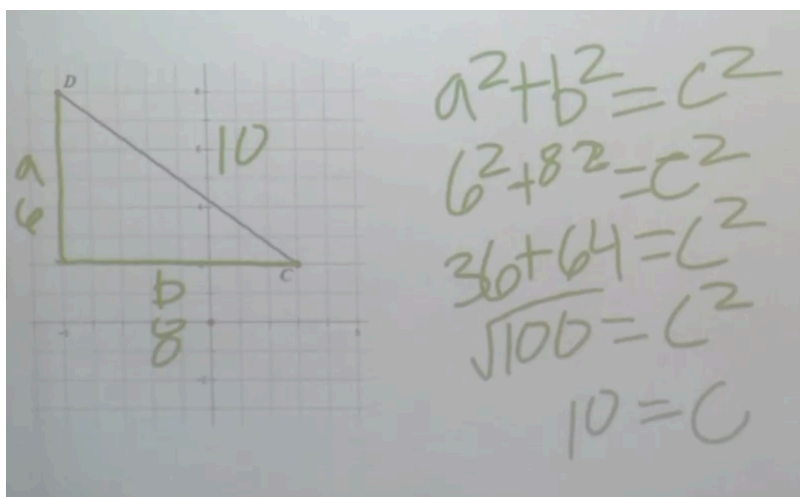 D
8
10
6
a
6
4
C
b
8
a²+b²=c²
6²+8²=c²
36+64=c²
√100=c²
10=c